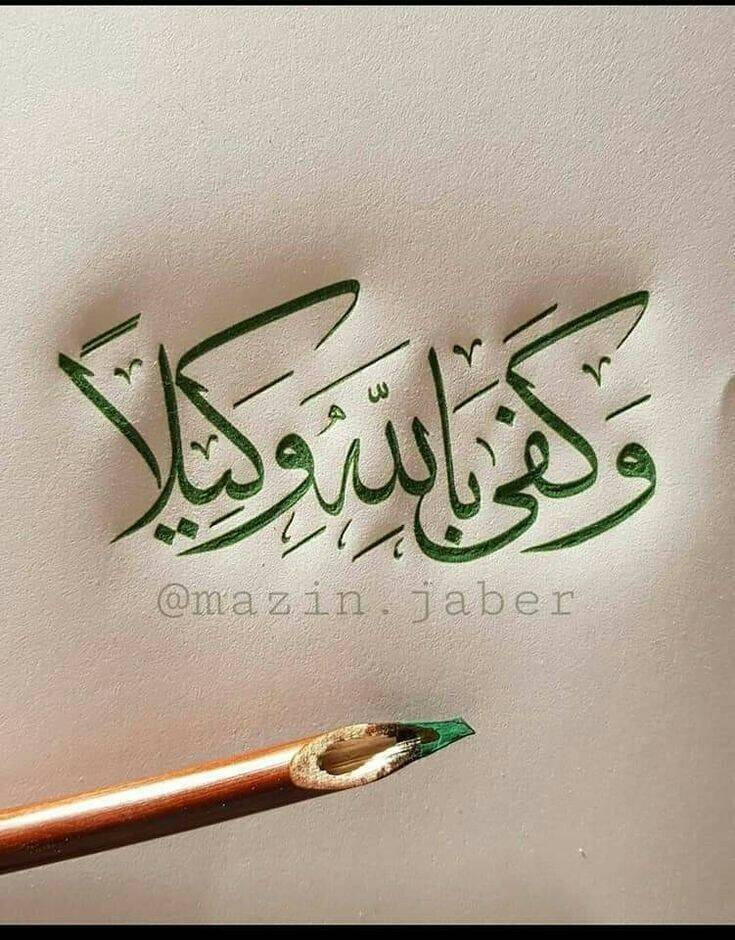 وَكَفَى بَاللّهِ وَكِيلاً
@mazin.jaber